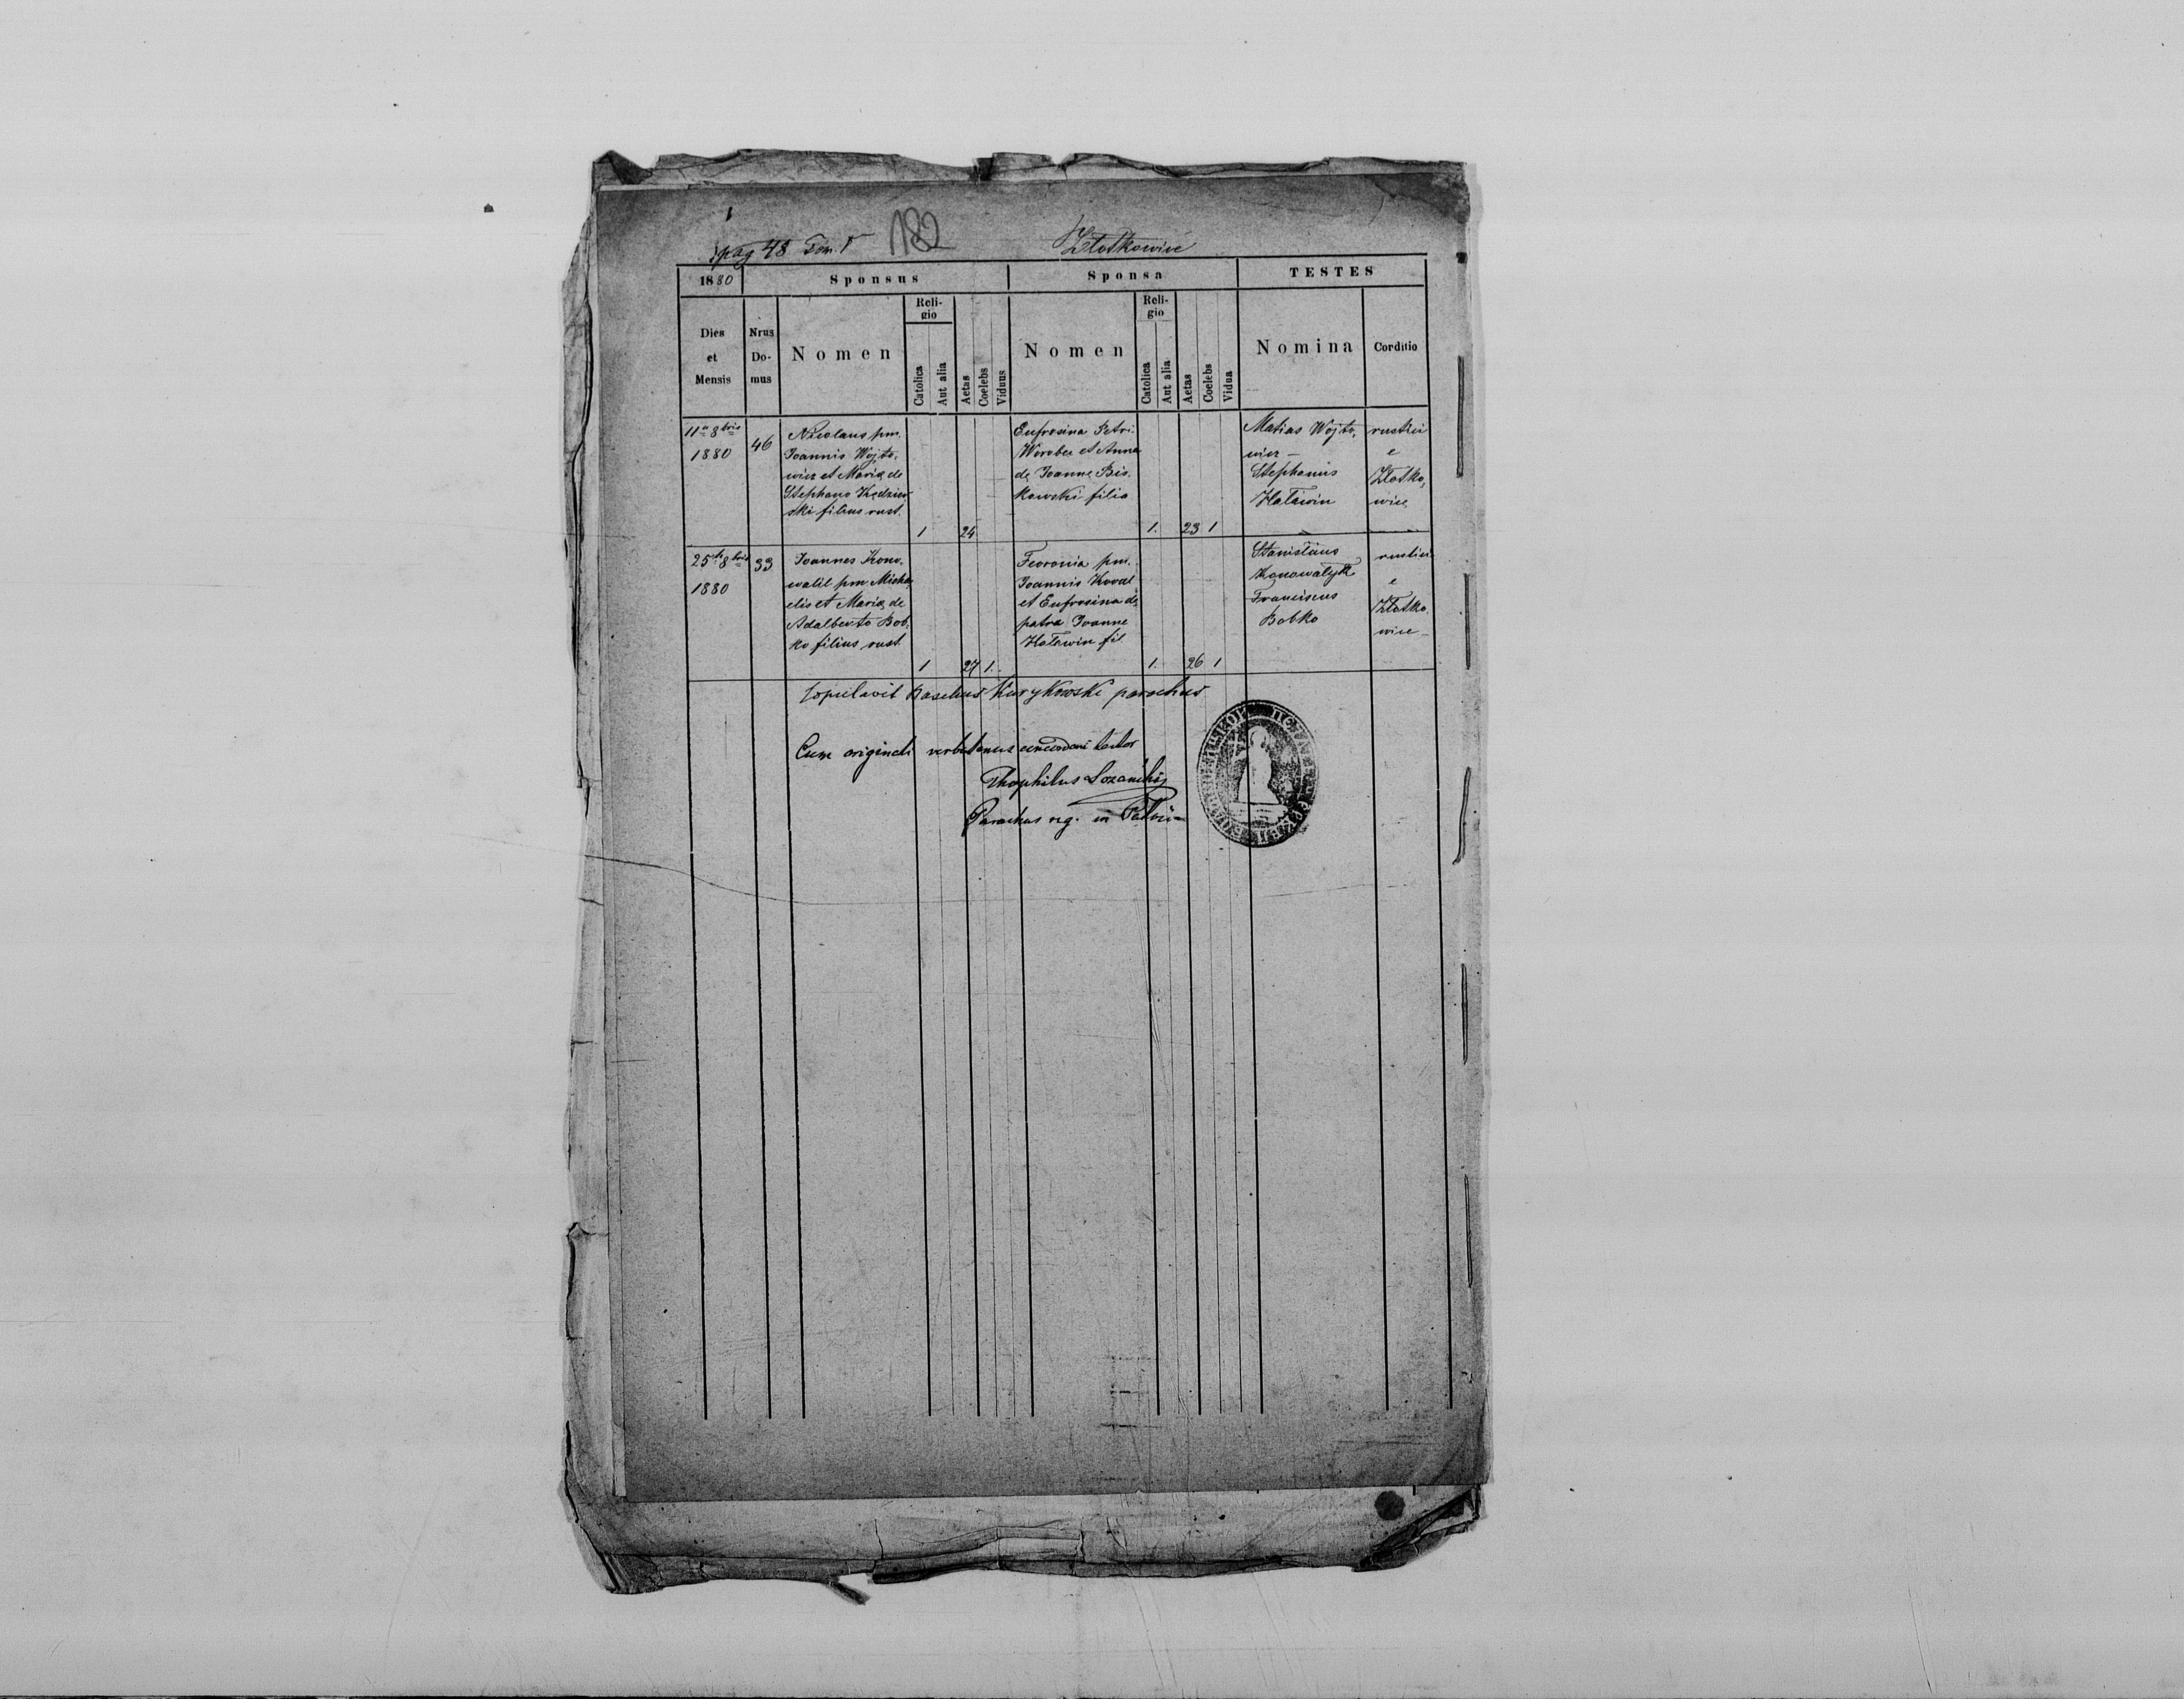 pag 48 Tom. V
182
Złotkowice
1880
Sponsus
Sponsa
TESTES
Dies et Mensis
Nrus Domus
Nomen
Religio
Catolica
Aut alia
Aetas
Coelebs
Viduus
Nomen
Religio
Catolica
Aut alia
Aetas
Coelebs
Vidua
Nomina
Corditio
11a 8bris
1880
46
Nicolaus pm.
Joannis Wojto-
wicz et Maria de
Stephano Kędzier
ski filius rust.
1
24
Eufrosina Petri
Worobec et Anna
de Joanne Bis
kowski filia
1.
23
1
Matias Wojto,
wicz –
Stephanus
Hatawin
rustici
e
Złotko,
wice
25ta 8bris
1880
33
Joannes Kono,
walik pm Micha,
elis et Maria de
Adalberto Bob,
ko filius rust
1
27
1.
Feoronia pm.
Joannis Koval
et Eufrosina de
patre Joanne
Hatawin fil
1.
26
1
Stanislaus
Konowałyk
Franciscus
Bobko
rustici
e
Złotko,
wice –
Copulavit Basilius Kurykowski parochus
Cum originali verbotenus concordari testor
Parochus